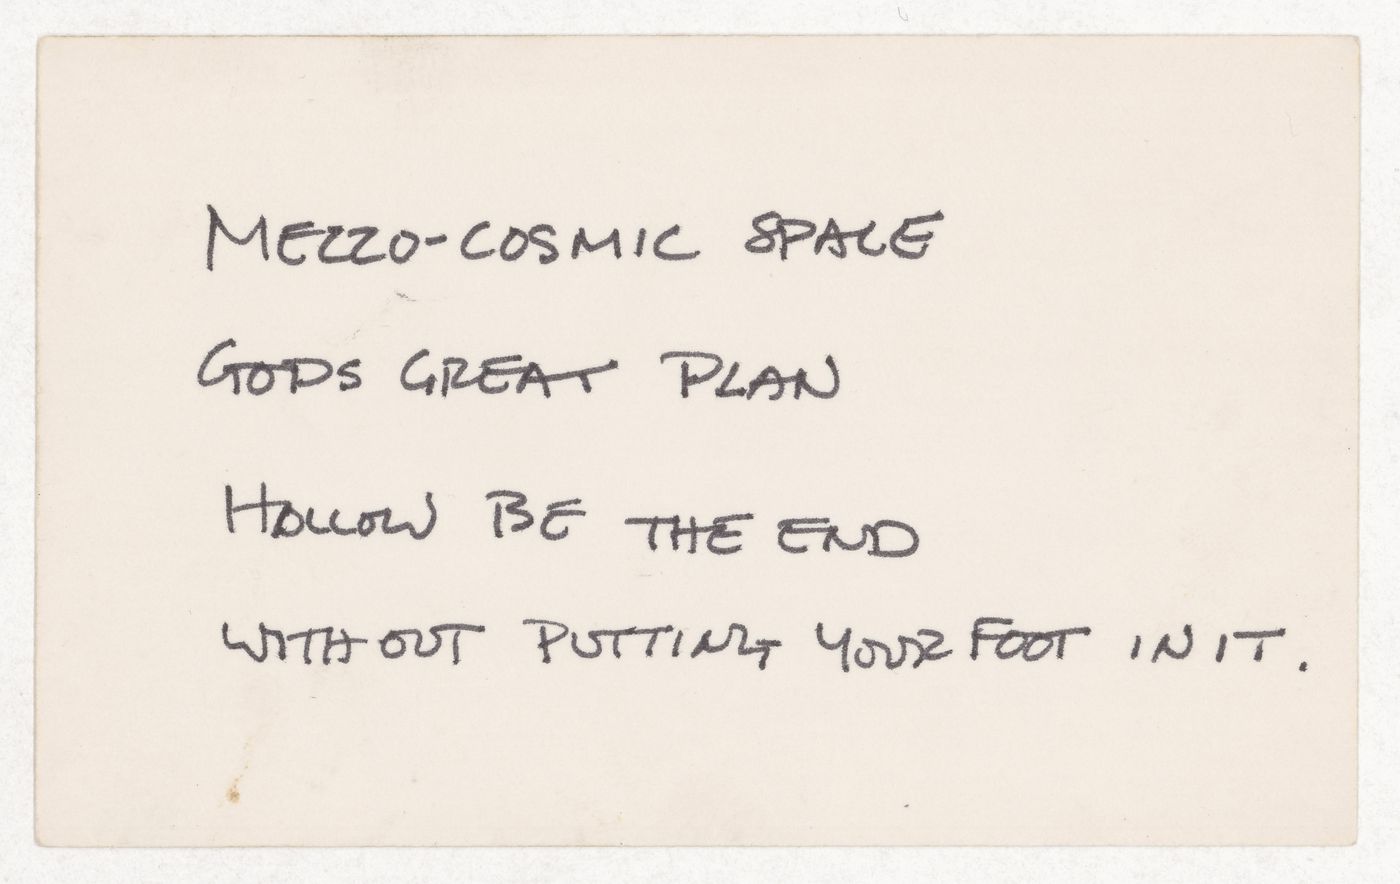 MEZZO-COSMIC SPACE
GODS GREAT PLAN
HOLLOW BE THE END
WITHOUT PUTTING YOUR FOOT IN IT.